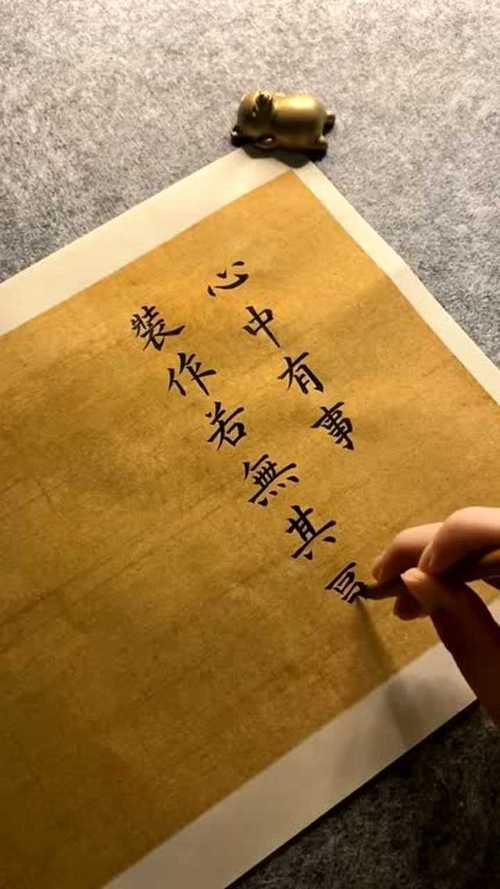 心中有事
裝作若無其